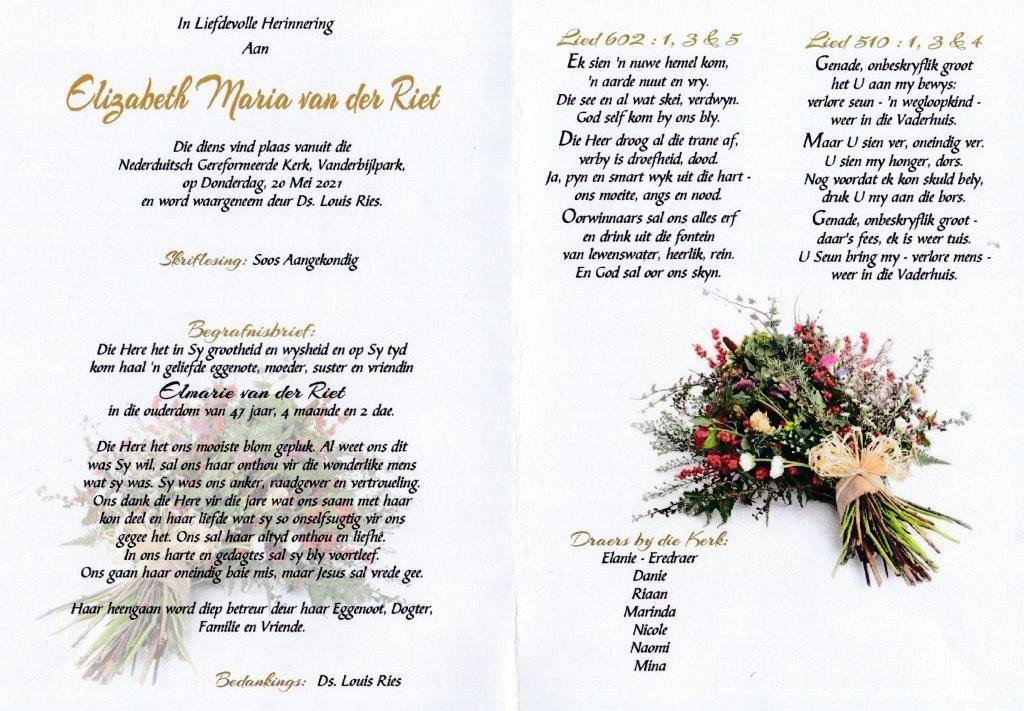 In Liefdevolle Herinnering
Aan
Elizabeth Maria van der Riet
Die diens vind plaas vanuit die
Nederduitsch Gereformeerde Kerk, Vanderbijlpark,
op Donderdag, 20 Mei 2021
en word waargeneem deur Ds. Louis Ries.
Skriflesing: Soos Aangekondig
Begrafnisbrief:
Die Here het in Sy grootheid en wysheid en op Sy tyd
kom haal 'n geliefde eggenote, moeder, suster en vriendin
Elmarie van der Riet
in die ouderdom van 47 jaar, 4 maande en 2 dae.
Die Here het ons mooiste blom gepluk. Al weet ons dit
was Sy wil, sal ons haar onthou vir die wonderlike mens
wat sy was. Sy was ons anker, raadgewer en vertroueling.
Ons dank die Here vir die jare wat ons saam met haar
kon deel en haar liefde wat sy so onselfsugtig vir ons
gegee het. Ons sal haar altyd onthou en liefhê.
In ons harte en gedagtes sal sy bly voortleef.
Ons gaan haar oneindig baie mis, maar Jesus sal vrede gee.
Haar heengaan word diep betreur deur haar Eggenoot, Dogter,
Familie en Vriende.
Bedankings: Ds. Louis Ries
Lied 602 : 1, 3 & 5
Ek sien 'n nuwe hemel kom,
'n aarde nuut en vry.
Die see en al wat skei, verdwyn.
God self kom by ons bly.
Die Heer droog al die trane af,
verby is droefheid, dood.
Ja, pyn en smart wyk uit die hart -
ons moeite, angs en nood.
Oorwinnaars sal ons alles erf
en drink uit die fontein
van lewenswater, heerlik, rein.
En God sal oor ons skyn.
Lied 510 : 1, 3 & 4
Genade, onbeskryflik groot
het U aan my bewys:
verlore seun - 'n wegloopkind -
weer in die Vaderhuis.
Maar U sien ver, oneindig ver.
U sien my honger, dors.
Nog voordat ek kon skuld bely,
druk U my aan die bors.
Genade, onbeskryflik groot -
daar's fees, ek is weer tuis.
U Seun bring my - verlore mens -
weer in die Vaderhuis.
Draers by die Kerk:
Elanie - Eredraer
Danie
Riaan
Marinda
Nicole
Naomi
Mina